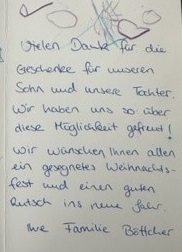 Vielen Dank für die
Geschenke für unseren
Sohn und unsere Tochter.
Wir haben uns so über
diese Möglichkeit gefreut!
Wir wünschen Ihnen allen
ein gesegnetes Weihnachts-
fest und einen guten
Rutsch ins neue Jahr.
Ihre Familie Böttcher